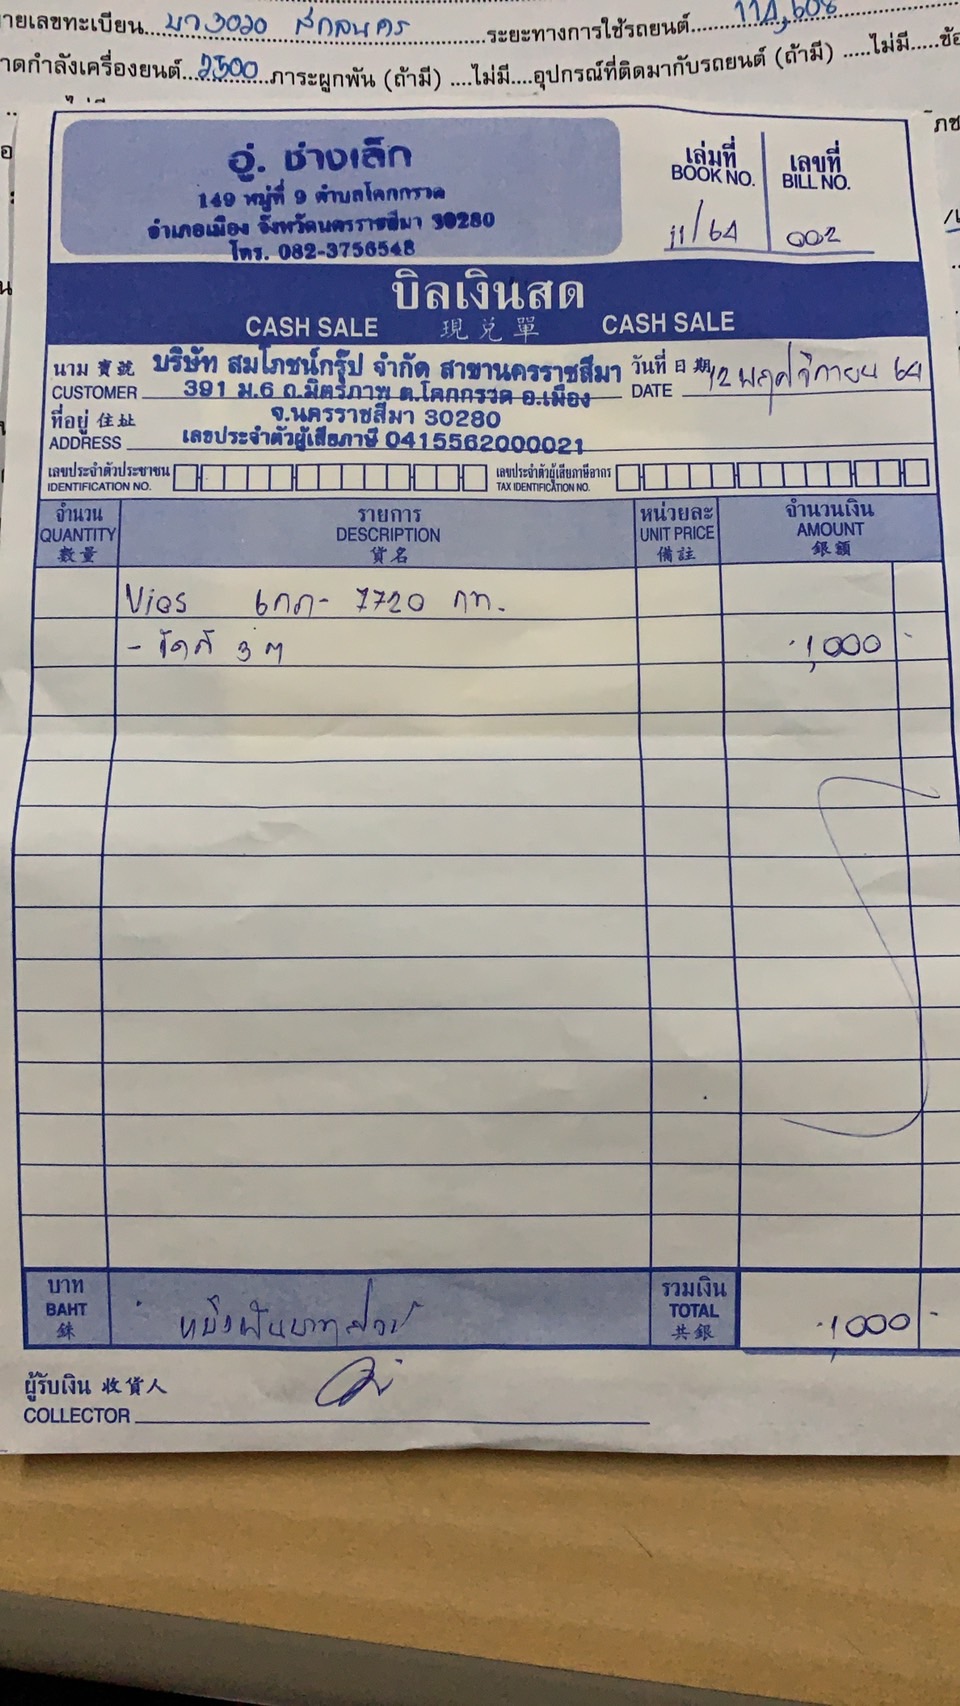 ายเลขทะเบียน....บว3020 สกลนคร....ระยะทางการใช้รถยนต์....114,608
าดกำลังเครื่องยนต์..2500..ภาระผูกพัน (ถ้ามี) ....ไม่มี....อุปกรณ์ที่ติดมากับรถยนต์ (ถ้ามี) .....ไม่มี.....ข้อ
อู่. ช่างเล็ก
149 หมู่ที่ 9 ตำบลโคกกรวด
อำเภอเมือง จังหวัดนครราชสีมา 30280
โทร. 082-3756548
เล่มที่ เลขที่
BOOK NO. BILL NO.
11/64 002
บิลเงินสด
CASH SALE 現兑單 CASH SALE
นาม 寶號 บริษัท สมโภชน์กรุ๊ป จำกัด สาขานครราชสีมา วันที่ 日期 12 พฤศจิกายน 64
CUSTOMER 391 ม.6 ถ.มิตรภาพ ต.โคกกรวด อ.เมือง DATE
ที่อยู่ 住址 จ.นครราชสีมา 30280
ADDRESS เลขประจำตัวผู้เสียภาษี 0415562000021
เลขประจำตัวประชาชน เลขประจำตัวผู้เสียภาษีอากร
IDENTIFICATION NO. TAX IDENTIFICATION NO.
จำนวน รายการ หน่วยละ จำนวนเงิน
QUANTITY DESCRIPTION UNIT PRICE AMOUNT
數量 貨名 備註 銀額
Vios 6กภ- 7720 กท.
- ขัดสี 3 M 1,000 -
บาท รวมเงิน
BAHT หนึ่งพันบาทถ้วน TOTAL 1,000 -
銖 共銀
ผู้รับเงิน 收貨人
COLLECTOR